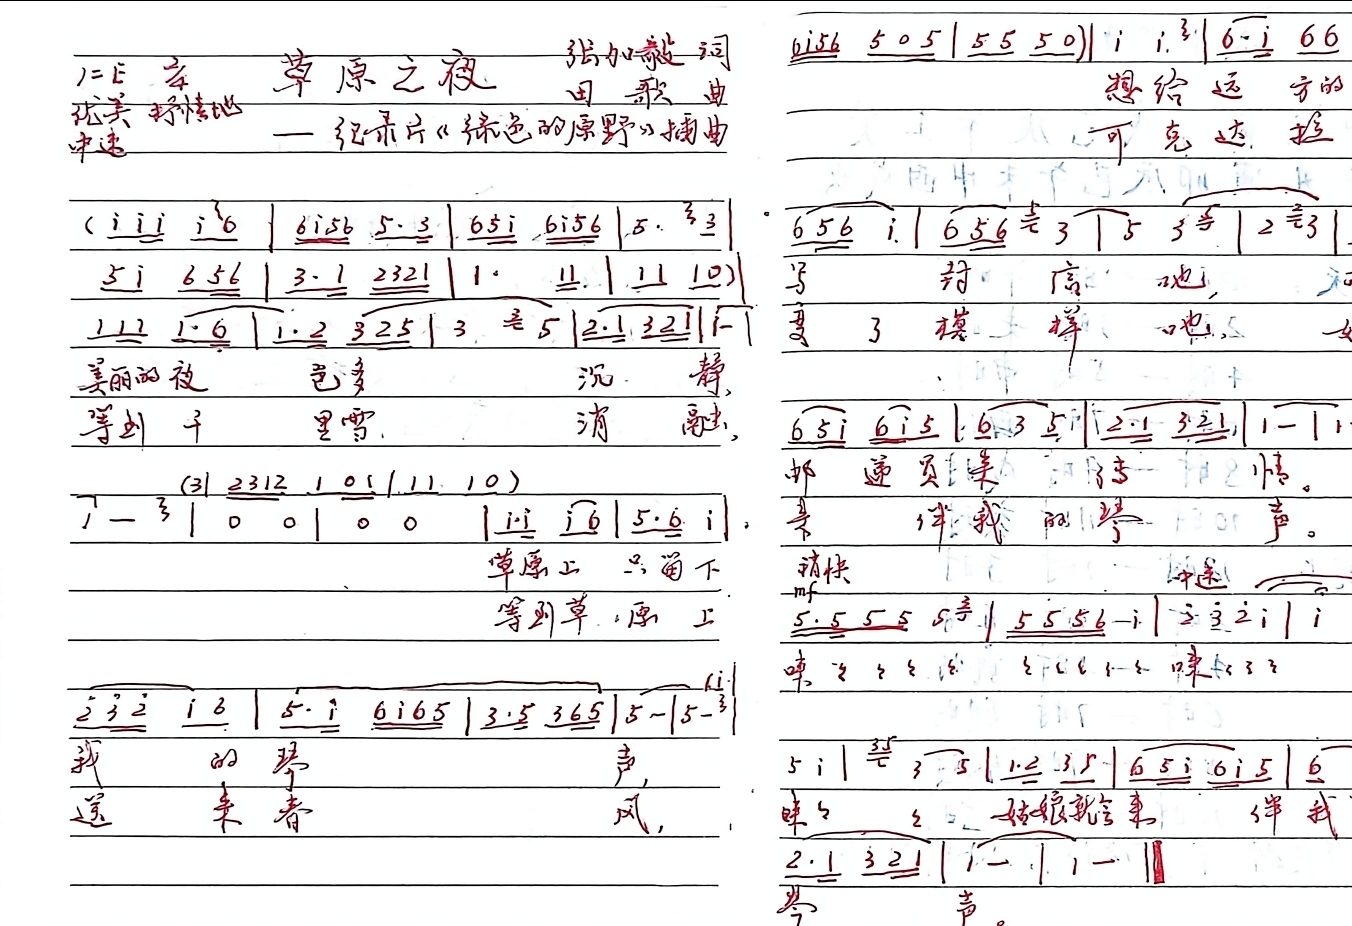 1=E 草原之夜 张加毅 词
优美 抒情地 田 歌 曲
中速 — 纪录片《绿色的原野》插曲
( i i i i 6 | 6i56 5·3 | 65i 6i56 | 5· 3 |
5i 656 | 3·1 2321 | 1· 11 | 11 10) |
111 1·6 | 1·2 325 | 3 5 | 2·1 321 | 1- |
美丽的夜 色多 沉 静,
等到千 里雪 消 融,
(3| 2312 101 | 11 10)
1 — | 0 0 | 0 0 | i·i i6 | 5·6 i |
草原上 只留下
等到草原上
232 i6 | 5·i 6i65 | 3·5 365 | 5- | 5- |
我 的琴 声,
送 来春 风,
6i56 505 | 55 50) | i i | 6·i 66
想给远 方的
可克达 拉
656 i | 656 3 | 5 3 | 2 3 |
写 封 信 吔,
变 了 模 样 吔,
65i 6i5 | 6 3 5 | 2·1 321 | 1- | 1
邮 递员来 传 情。
来 伴我 的琴 声。
稍快 中速
mf
5·5 5 5 5 | 5 5 5 6 -i | 2 3 2 i | i
5 i | 3 5 | 1·2 35 | 65i 6i5 | 6
姑娘就会来 伴我
2·1 321 | 1- | 1- ‖
琴 声。